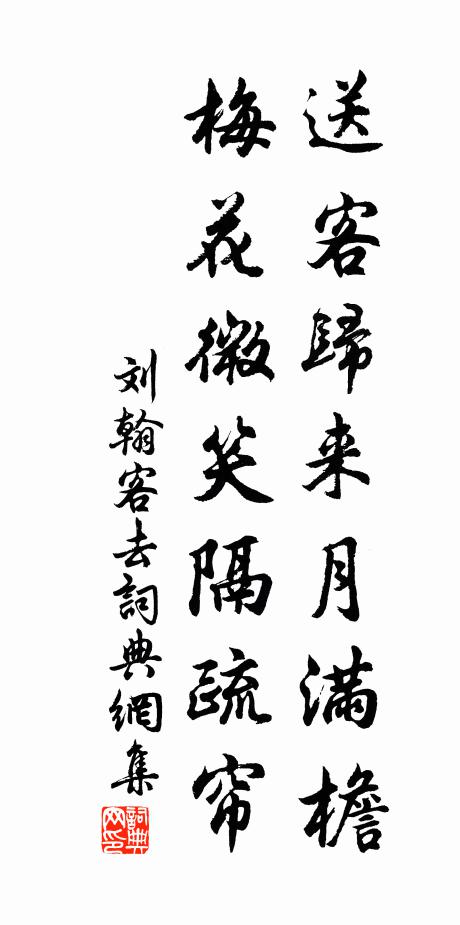 送客歸来月满檐
梅花微笑隔疏帘
刘翰客去詞典網集
詞典网印